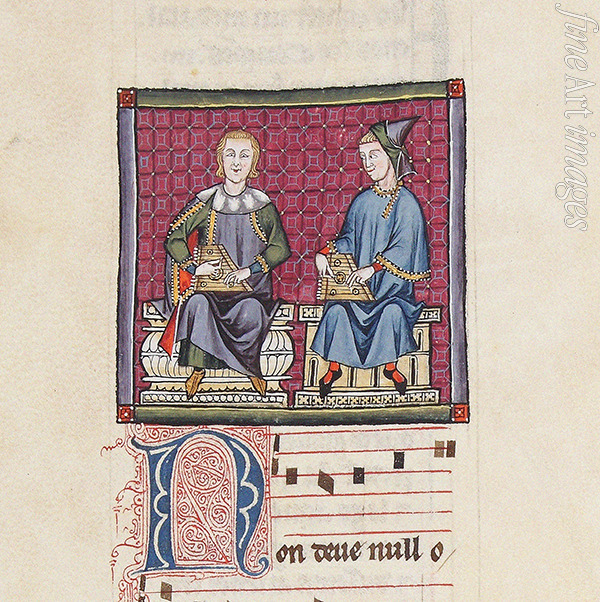 fineArtimages
Non deue null o